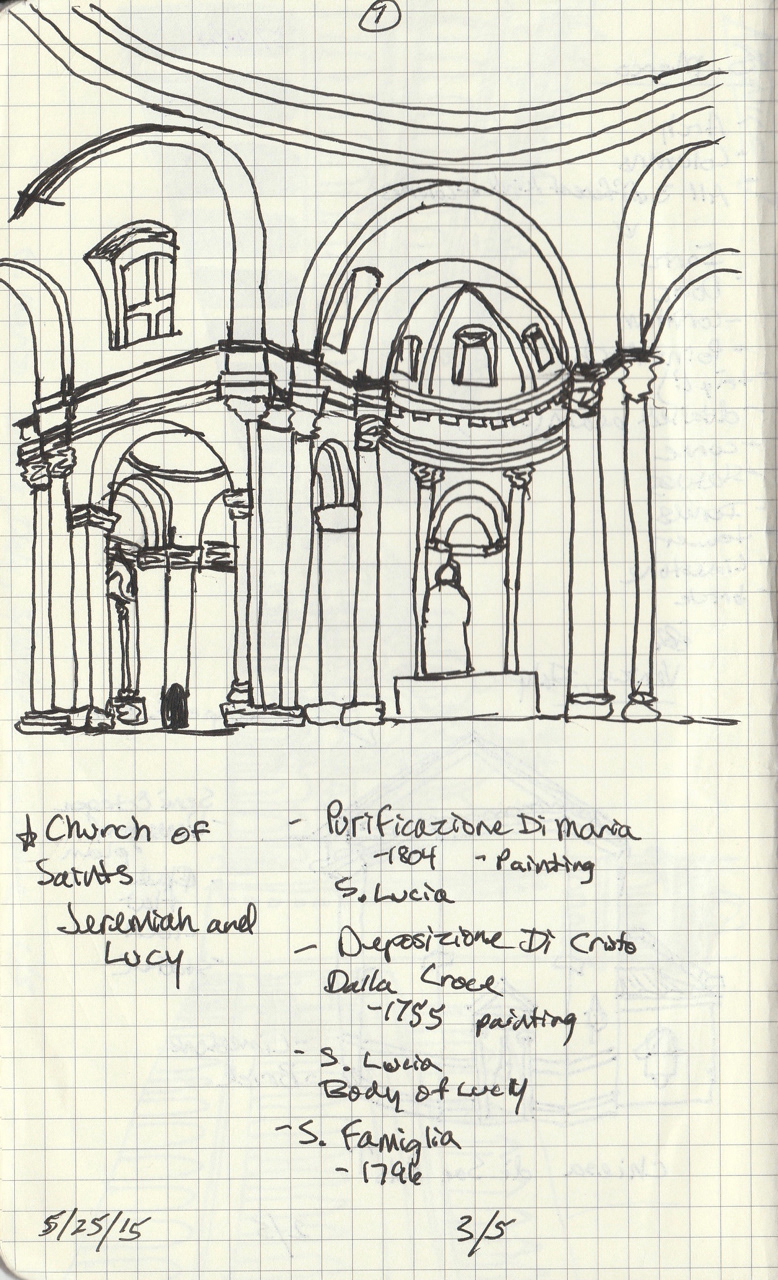 1
☆ Church of
Saints
Jeremiah and
Lucy
- Purificazione Di Maria
-1804 - Painting
S. Lucia
- Deposizione Di Cristo
Dalla Croce
-1755 painting
- S. Lucia
Body of Lucy
- S. Famiglia
- 1796
5/25/15
3/5